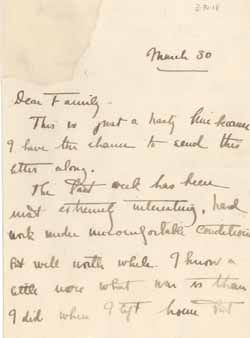 3-30-18
March 30
Dear Family -
This is just a hasty line because
I have the chance to send this
letter along.
The past week has been
most extremely interesting, hard
work under uncomfortable conditions
but well worth while. I know a
little more what war is than
I did when I left home but